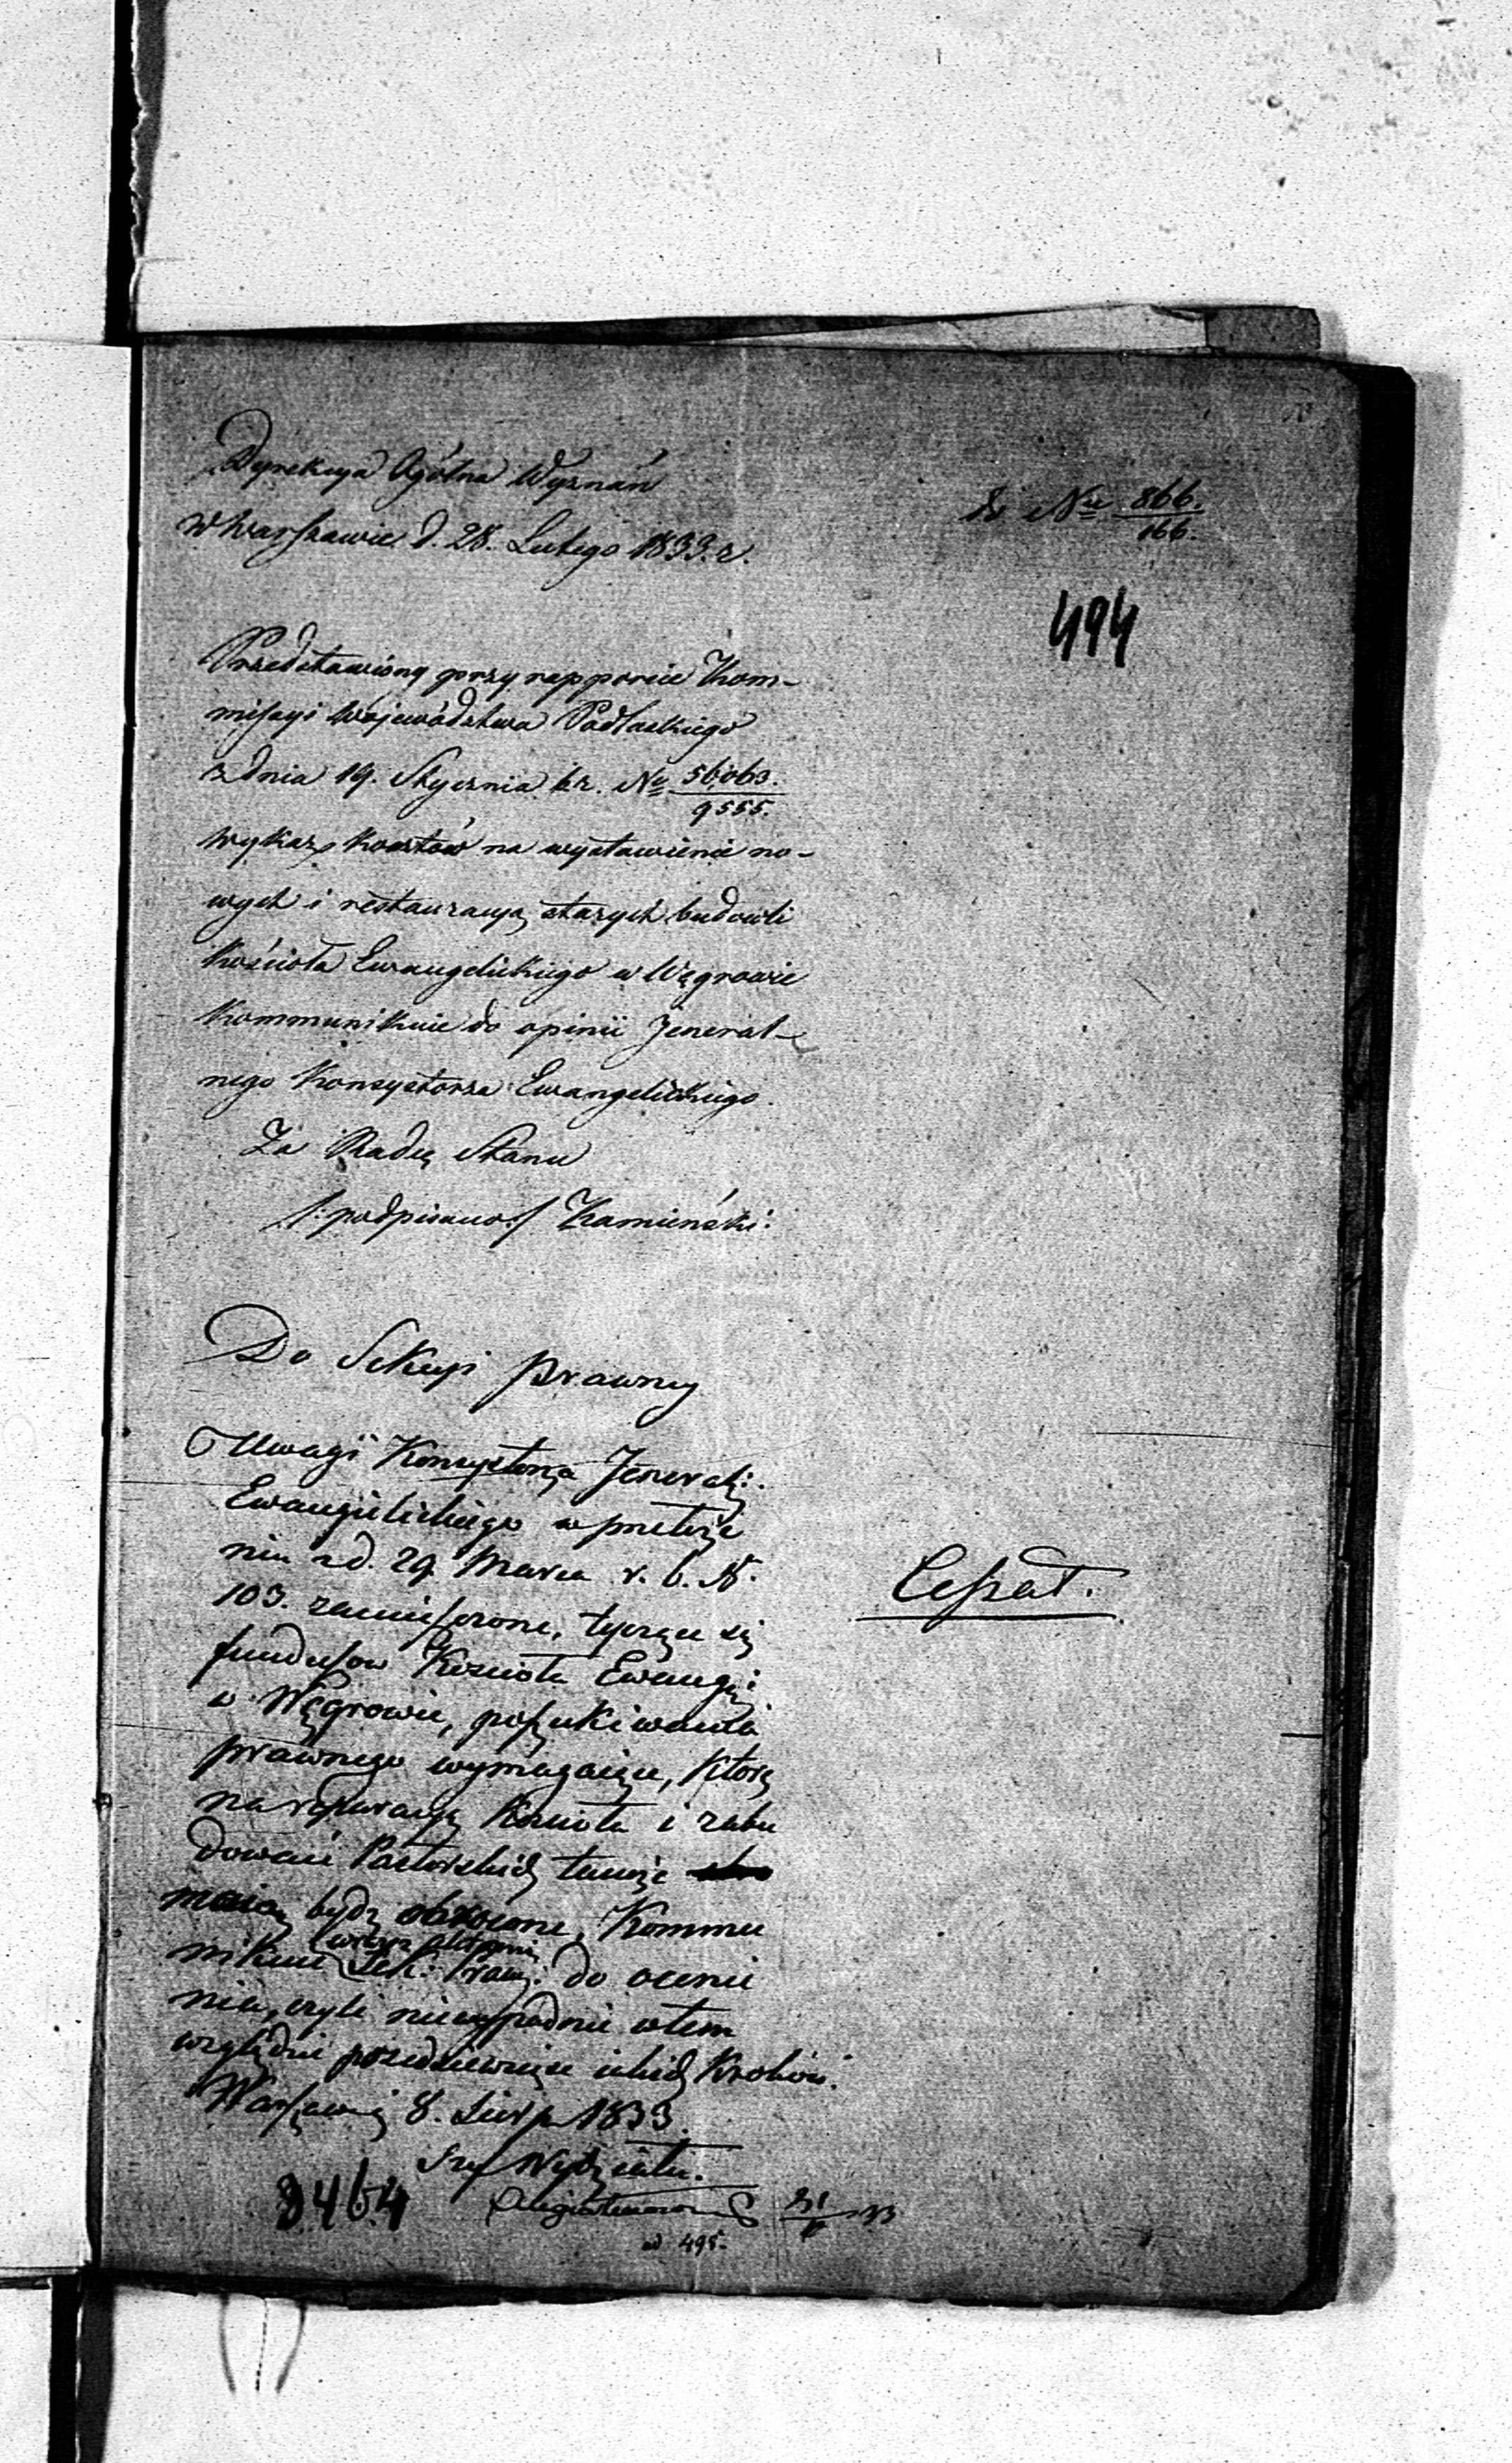 Dyrekcya Ogólna Wyznań
w Warszawie d. 28. Lutego 1833. r.
do Nu 866./166.
494
Przedstawiony przy rapporcie Kom-
missyi Województwa Podlaskiego
z dnia 19. Stycznia b.r. Nu 56,063./9555.
wykaz kosztów na wystawienie no-
wych i restauracyą starych budowli
Kościoła Ewangelickiego w Węgrowie
Kommunikuie do opinii Jeneral-
nego Konsystorza Ewangelickiego.
Za Radcę Stanu
/:podpisano:/ Kamieński.
Do Sekcyi Prawney
Uwagi Konsystorza Jeneral:
Ewangelickiego w przełoże
niu z d. 29 Marca r. b. N.
103. zamieszczone, tyczące się
funduszow Kościoła Ewangi:
w Węgrowie, poszukiwania
prawnego wymagaiące, które
na reperacyą Kościoła i zabu
dowań Pastorskich tamże
maią bydź obrócone, Kommu
nikuie Sek: Praw: do ocenie
nia, czyli niewypadnie w tem
względzie przedsiewziąć iakich Kroków.
Warszawa 8. Sierp 1833.
Szef Wydziału.
3464
31/8 33
ad 495.